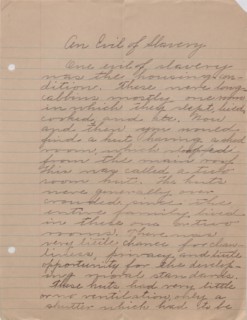 An Evil of Slavery
One evil of slavery
was the housing con-
dition. These were log-
cabins mostly one room
in which they slept,
cooked and etc. Now
and then you would
find a hut having a shed
room, which
from the main roof
this way called a two
room hut. The huts
were generally over
crowded since the
entire family lived
in these one and two
rooms. There was
very little chance for clean
liness, privacy and little
opportunity for the develop-
ing moral standards.
These huts had very little
or no ventilation only a
shutter which had to be